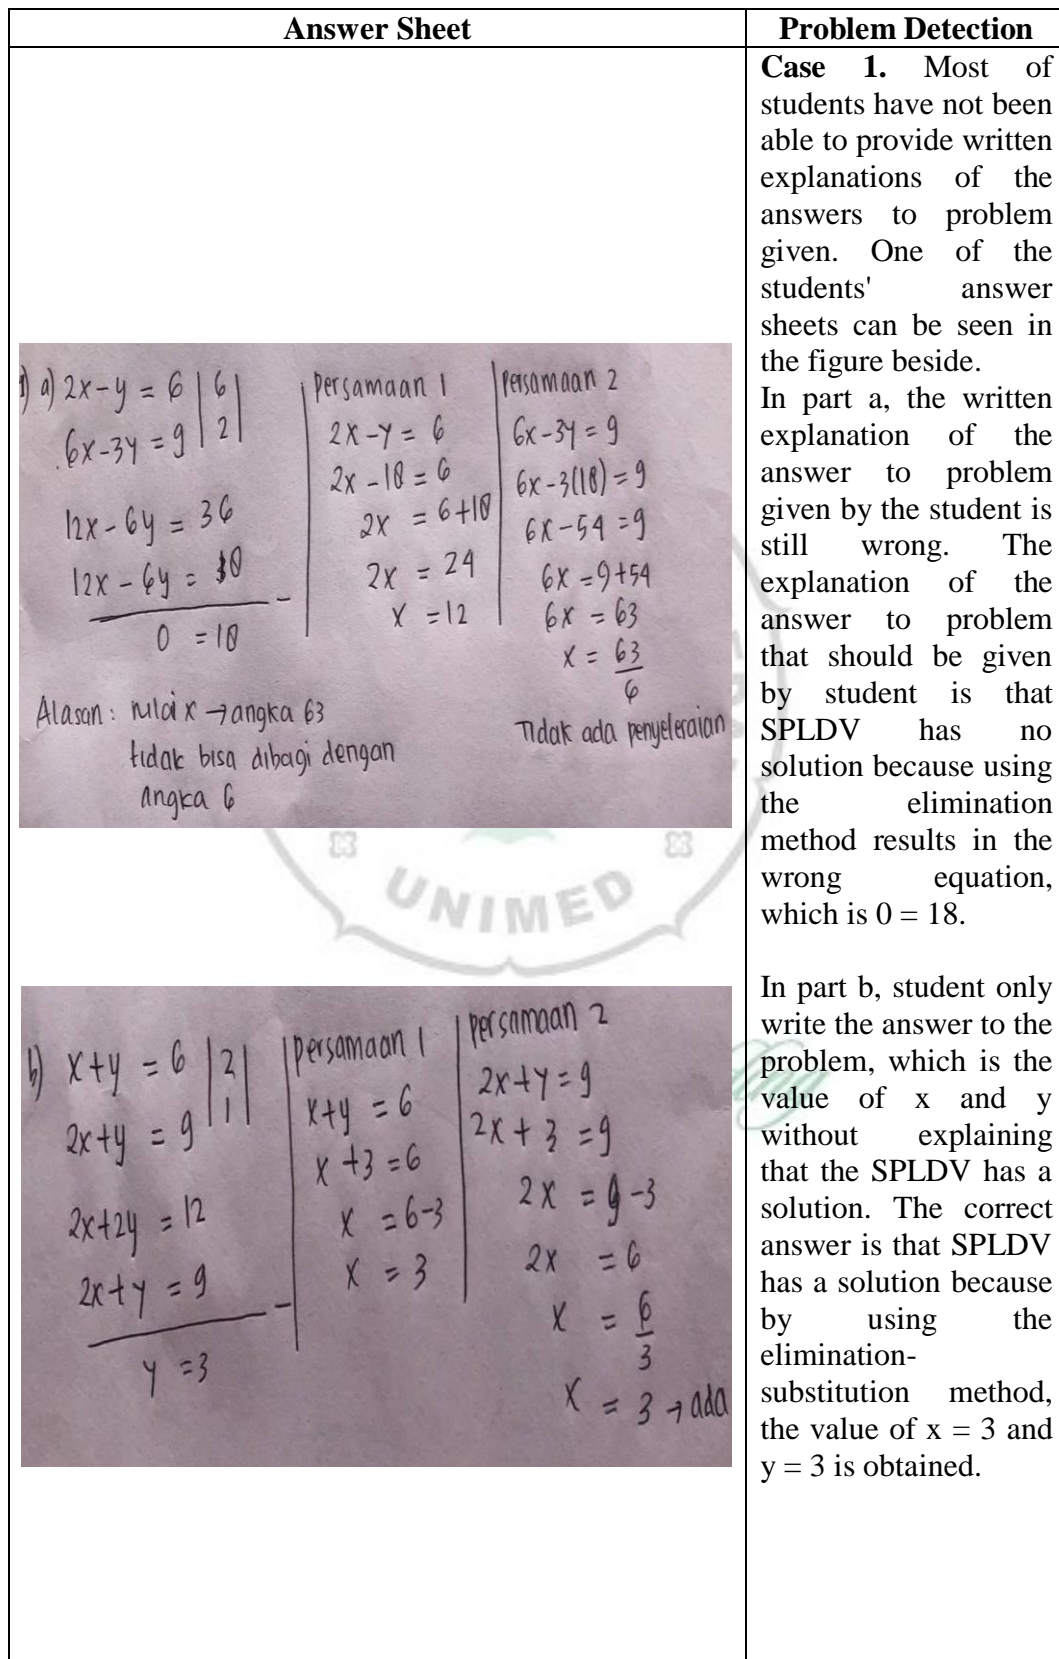 Answer Sheet
Problem Detection
1) a) 2x-y = 6 | 6 |
6x-3y = 9 | 2 |
12x - 6y = 36
12x - 6y = 18 -
0 = 18
Alasan: nilai x → angka 63
tidak bisa dibagi dengan
angka 6
Persamaan 1
2x-y = 6
2x - 18 = 6
2x = 6+18
2x = 24
x = 12
Persamaan 2
6x-3y = 9
6x-3(18) = 9
6x-54 = 9
6x = 9+54
6x = 63
x = 63/6
Tidak ada penyeleraian
b) x+y = 6 | 2 |
2x+y = 9 | 1 |
2x+2y = 12
2x+y = 9 -
y = 3
Persamaan 1
x+y = 6
x +3 = 6
x = 6-3
x = 3
Persamaan 2
2x+y = 9
2x + 3 = 9
2x = 9-3
2x = 6
x = 6/3
x = 3 → ada
UNIMED
Case 1. Most of
students have not been
able to provide written
explanations of the
answers to problem
given. One of the
students' answer
sheets can be seen in
the figure beside.
In part a, the written
explanation of the
answer to problem
given by the student is
still wrong. The
explanation of the
answer to problem
that should be given
by student is that
SPLDV has no
solution because using
the elimination
method results in the
wrong equation,
which is 0 = 18.
In part b, student only
write the answer to the
problem, which is the
value of x and y
without explaining
that the SPLDV has a
solution. The correct
answer is that SPLDV
has a solution because
by using the
elimination-
substitution method,
the value of x = 3 and
y = 3 is obtained.